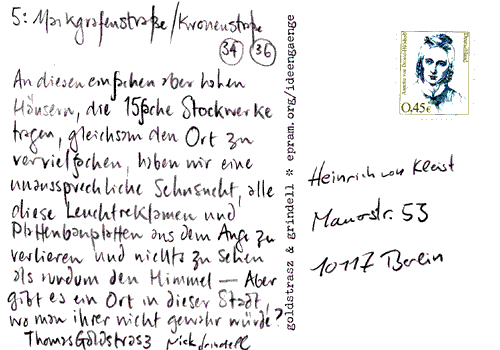 5: Markgrafenstraße/Kronenstraße
34 36
An diesen einfachen aber hohen
Häusern, die 15fache Stockwerke
tragen, gleichsam den Ort zu
vervielfachen, haben wir eine
unaussprechliche Sehnsucht, alle
diese Leuchtreklamen und
Plattenbauplatten aus dem Auge zu
verlieren und nichts zu sehen
als rundum den Himmel — Aber
gibt es ein Ort in dieser Stadt,
wo man ihrer nicht gewahr würde?
Thomas Goldstrasz Nick Grindell
goldstrasz & grindell * epram.org/ideengaenge
Deutschland
0,45€
Heinrich von Kleist
Mauerstr. 53
10117 Berlin